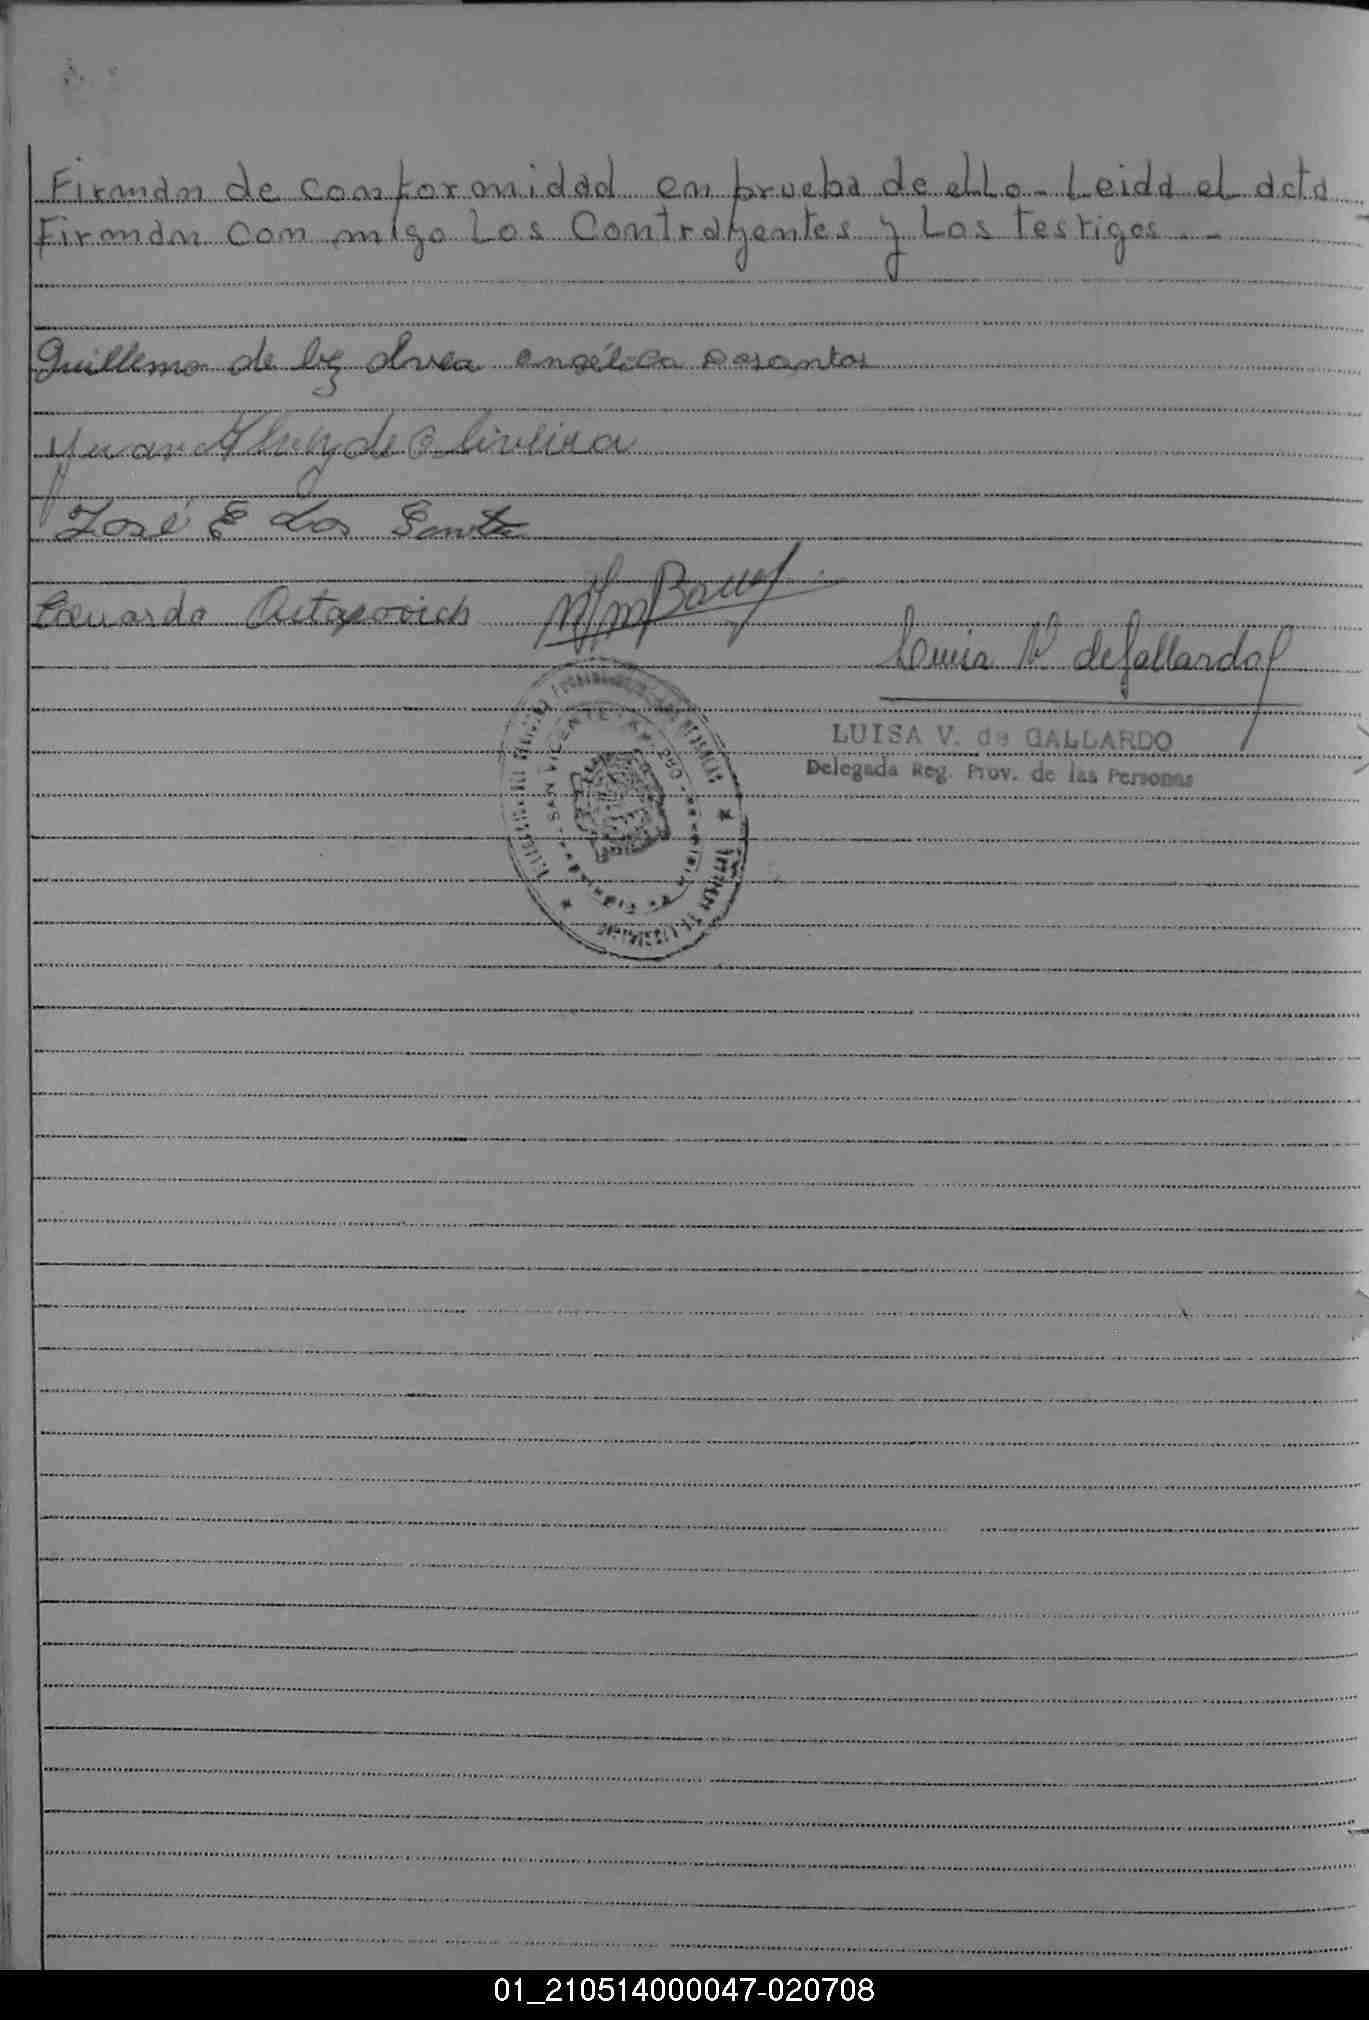 Firman de conformidad en prueba de ello - Leida el acta
Firman con migo Los Contrayentes y Los testigos - -
Guillermo de angélica dosantos
Juan Alvez de Oliveira
José E dos Santos
Eduardo Astapovich
Luisa V de Gallardo
LUISA V. de GALLARDO
Delegada Reg. Prov. de las Personas
SAN VICENTE - Km. 280
01_210514000047-020708